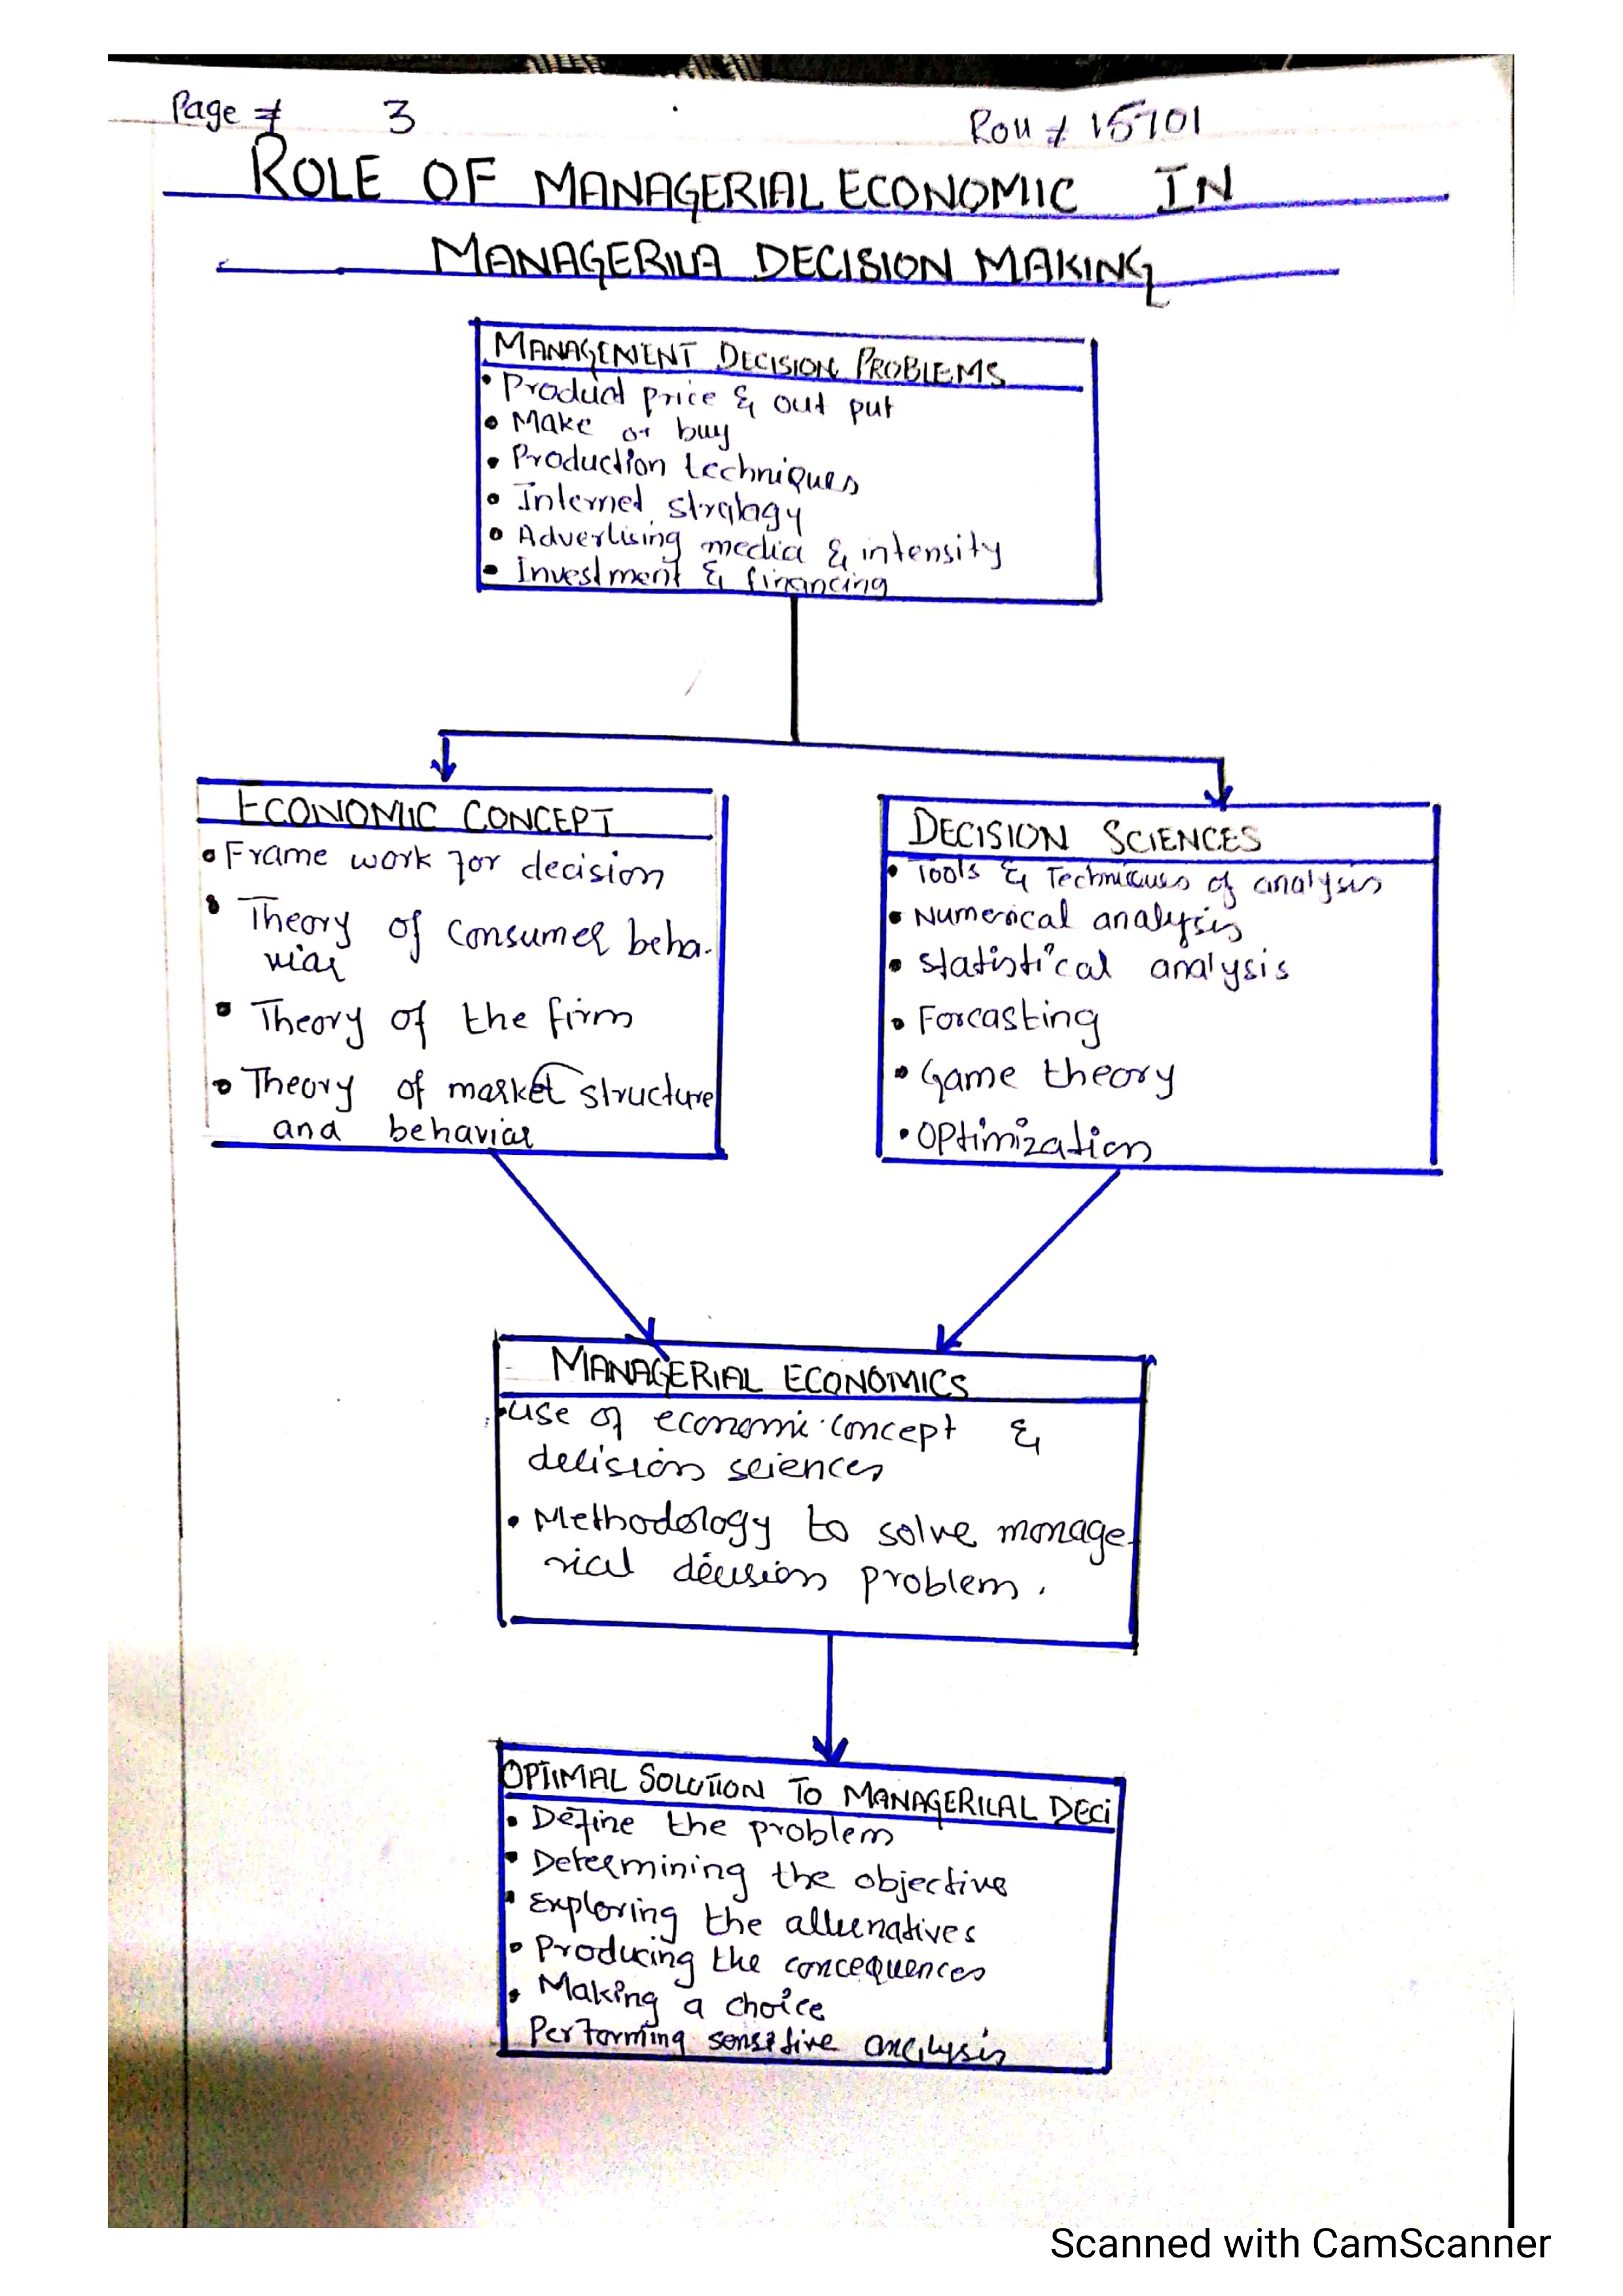 Page # 3
Roll # 15701
ROLE OF MANAGERIAL ECONOMIC IN
MANAGERILA DECISION MAKING
MANAGEMENT DECISION PROBLEMS
• Product price & out put
• Make or buy
• Production techniques
• Internet stratagy
• Advertising media & intensity
• Investment & financing
ECONOMIC CONCEPT
• Frame work for decision
• Theory of consumer beha-
viar
• Theory of the firm
• Theory of market structure
and behaviar
DECISION SCIENCES
• Tools & Techniques of analysis
• Numerical analysis
• Statistical analysis
• Forcasting
• Game theory
• Optimization
MANAGERIAL ECONOMICS
• use of economic concept &
decision sciences
• Methodology to solve manage-
rial decision problem.
OPTIMAL SOLUTION TO MANAGERILAL DECI
• Define the problem
• Determining the objective
• Exploring the alternatives
• Producing the concequences
• Making a choice
Performing sensitive analysis
Scanned with CamScanner